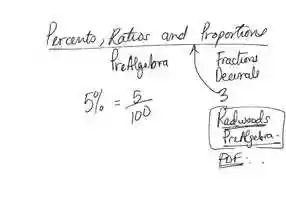 Percents, Ratios and Proportions
PreAlgebra
Fractions
Decimals
5% = 5/100
3
Redwoods
PreAlgebra.
PDF...